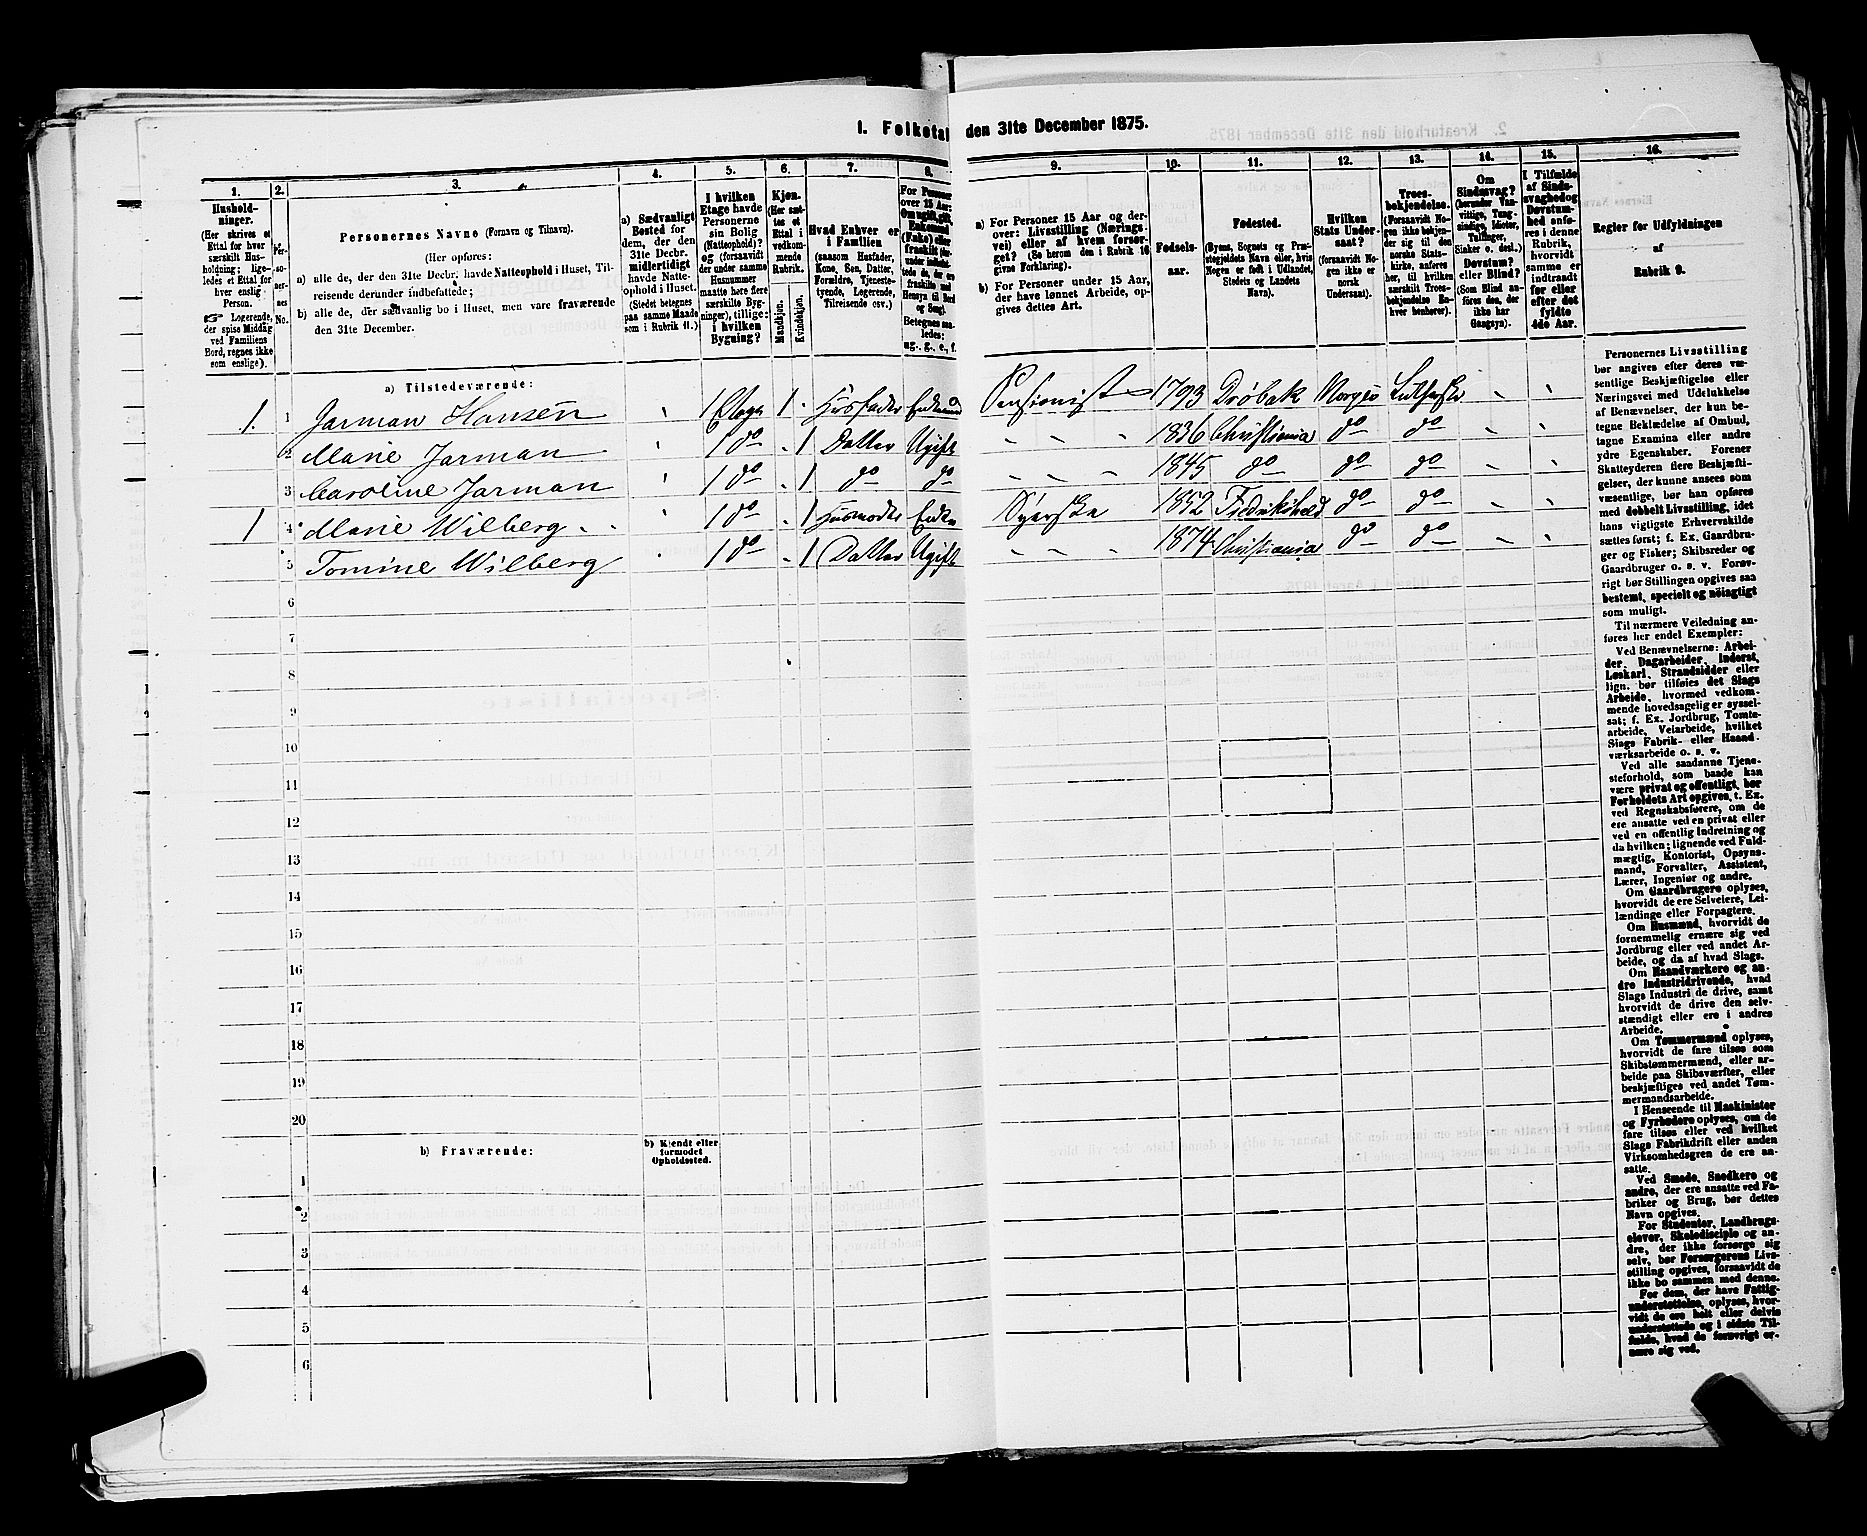 1. Folketal den 31te December 1875.
1. 2. 3. 4. 5. 6. 7. 8. 9. 10. 11. 12. 13. 14. 15. 16.
Hushold-
ninger.
(Her skrives et
Ettal for hver
særskilt Hus-
holdning; lige-
ledes et Ettal for
hver enslig
Person.
☞ Logerende,
der spise Middag
ved Familiens
Bord, regnes ikke
som enslige).
Per-
so-
ner-
nes
No.
Personernes Navne (Fornavn og Tilnavn).
(Her opføres:
a) alle de, der den 31te Decbr. havde Natteophold i Huset, Til-
reisende derunder indbefattede;
b) alle de, der sædvanlig bo i Huset, men vare fraværende
den 31te December.
a) Sædvanligt
Bosted for
dem, der den
31te Decbr.
midlertidigt
havde Natte-
ophold i Huset.
(Stedet betegnes
paa samme Maade
som i Rubrik 11.)
I hvilken
Etage havde
Personerne
sin Bolig
(Natteophold)?
og (forsaavidt
der under samme
Husnummer
maatte høre flere
særskilte Byg-
ninger), tillige:
i hvilken
Bygning?
Kjøn.
(Her sæt-
tes et
Ettal i
vedkom-
mende
Rubrik.
Mandkjøn.
Kvindekjøn.
Hvad Enhver er
i Familien
(saasom Husfader,
Kone, Søn, Datter,
Forældre, Tjeneste-
tyende, Logerende,
Tilreisende osv.)
For Personer
over 15 Aar:
Om ugift, gift,
Enkemand
(Enke) eller
fraskilt
Betegnes saa-
ledes:
ug., g., e., f.
a) For Personer 15 Aar og der-
over: Livsstilling (Nærings-
vei) eller af hvem forsør-
get? (Se herom den i Rubrik 16
givne Forklaring).
b) For Personer under 15 Aar,
der have lønnet Arbeide, op-
gives dettes Art.
Fødsels-
aar.
Fødested.
(Byens, Sognets og Præ-
stegjeldets Navn eller, hvis
Nogen er født i Udlandet,
Stedets og Landets
Navn).
Hvilken
Stats Under-
saat?
(forsaavidt No-
gen ikke er
norsk
Undersaat).
Troes-
bekjendelse.
(Forsaavidt No-
gen ikke bekjen-
der sig til den
norske Stats-
kirke, anføres
her, til hvilken
særskilt Troes-
bekjendelse En-
hver henhører).
Om
Sindssvag?
(herunder Van-
vittige, Tung-
sindige, Idioter,
Tullinger,
Sinker o. desl.)
Døvstum?
eller Blind?
(Som Blind an-
føres den, der
ikke har
Gangsyn).
I Tilfælde
af Sinds-
svaghed og
Døvstum-
hed anfø-
res i denne
Rubrik,
hvorvidt
samme er
indtraadt
før eller
efter det
fyldte
4de Aar.
Regler for Udfyldningen
af
Rubrik 9.
a) Tilstedeværende:
1. 1 Jarman Hansen 1 Etage 1 Husfader Enkemd Pensionist 1793 Drøbak Norges Luthersk
2 Marie Jarman 1 do 1 Datter Ugift 1836 Christiania do do
3 Caroline Jarman 1 do 1 do do 1845 do do do
1 4 Marie Wilberg 1 do 1 Husmoder Enke Syerske 1852 Fredrikshald do do
5 Tomine Wilberg 1 do 1 Datter Ugift 1874 Christiania do do
6
7
8
9
10
11
12
13
14
15
16
17
18
19
20
b) Fraværende:
b) Kjendt eller
formodet
Opholdssted.
1
2
3
4
5
6
Personernes Livsstilling
bør angives efter deres væ-
sentlige Beskjæftigelse eller
Næringsvei med Udelukkelse
af Benævnelser, der kun be-
tegne Beklædelse af Ombud,
tagne Examina eller andre
ydre Egenskaber. Forener
Skatteyderen flere Beskjæfti-
gelser, der kunne ansees som
væsentlige, bør han opføres
med dobbelt Livsstilling, idet
hans vigtigste Erhvervskilde
sættes først; f. Ex. Gaardbru-
ger og Fisker; Skibsreder og
Gaardbruger o. s. v. Forøv-
rigt bør Stillingen opgives saa
bestemt, specielt og nöiagtigt
som muligt.
Til nærmere Veiledning an-
føres her endel Exempler:
Ved Benævnelserne: Arbei-
der, Dagarbeider, Inderst,
Løskarl, Strandsidder eller
lign. bør tilføies det Slags
Arbeide, hvormed vedkom-
mende hovedsagelig er syssel-
sat; f. Ex. Jordbrug, Tomte-
arbeide, Veiarbeide, hvilket
Slags Fabrik- eller Haand-
værksarbeide o. s. v.
Ved alle saadanne Tjene-
steforhold, som baade kan
være privat og offentligt, bør
Forholdets Art opgives, t. Ex.
ved Regnskabsførere, om de
ere ansatte ved en privat eller
ved en offentlig Indretning og
da hvilken; lignende ved Fuld-
mægtig, Kontorist, Opsyns-
mand, Forvalter, Assistent,
Lærer, Ingeniør og andre.
Om Gaardbrugere oplyses,
hvorvidt de ere Selveiere, Lei-
lændinge eller Forpagtere.
Om Husmænd, hvorvidt de
fornemmelig ernære sig ved
Jordbrug eller ved andet Ar-
beide, og da af hvad Slags.
Om Haandværkere og an-
dre Industridrivende, hvad
Slags Industri de drive, samt
hvorvidt de drive den selv-
stændigt eller ere i andres
Arbeide.
Om Tømmermænd oplyses,
hvorvidt de fare tilsøs som
Skibstømmermænd, eller ar-
beide paa Skibsværfter, eller
beskjæftiges ved andet Tøm-
mermandsarbeide.
I Henseende til Maskinister
og Fyrbødere oplyses, om de
fare tilsøs eller ved hvilket
Slags Fabrikdrift eller anden
Virksomhedsgren de ere an-
satte.
Ved Smede, Snedkere og
andre, der ere ansatte ved Fa-
briker og Brug, bør dettes
Navn opgives.
For Studenter, Landbrugs-
elever, Skoledisciple og an-
dre, der ikke forsørge sig
selv, bør Forsørgerens Livs-
stilling opgives, forsaavidt de
ikke bo sammen med denne.
For dem, der have Fattig-
understøttelse, oplyses, hvor-
vidt de ere helt eller delvis
understøttede og i sidste Til-
fælde, hvad de forøvrigt er-
nære sig ved.